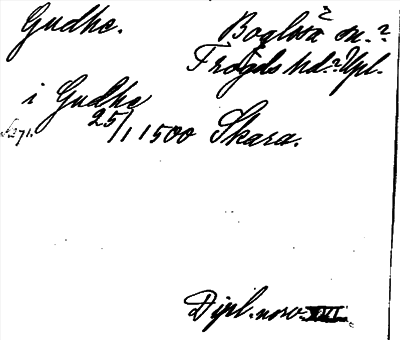 Gudhe. Boglösa sn.?
Trögds hd.? Upl.
i Gudhe
25/1 1500 Skara.
Dipl. norv. XVI.